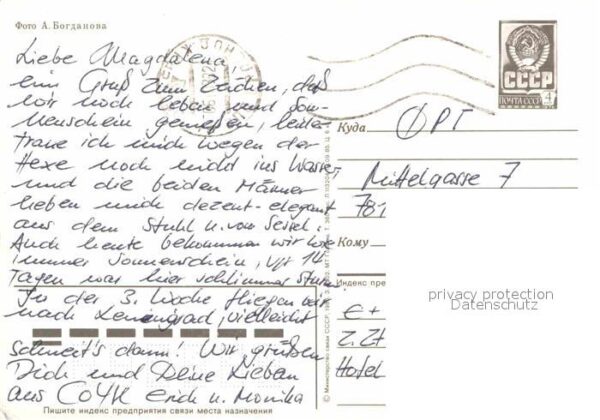 Фото А. Богданова
Liebe Magdalena,
ein Gruß zum Zeichen, daß
wir noch leben und Son-
nenschein genießen, leider
traue ich mich wegen der
Hexe noch nicht ins Wasser
und die beiden Männer
heben mich dezent-elegant
aus dem Stuhl u. vom Sessel.
Auch heute bekommen wir wie
immer Sonnenschein, vor 14
Tagen war hier schlimmer Sturm
In der 3. Woche fliegen wir
nach Leningrad, vielleicht
schneit's dann! Wir grüßen
Dich und Deine Lieben
aus СОЧИ Erich u. Monika
Пишите индекс предприятия связи места назначения
СССР
ПОЧТА СССР 4
Куда ФРГ
Mittelgasse 7
781
Кому
Индекс пре
privacy protection
Datenschutz
E +
z. Zt
Hotel